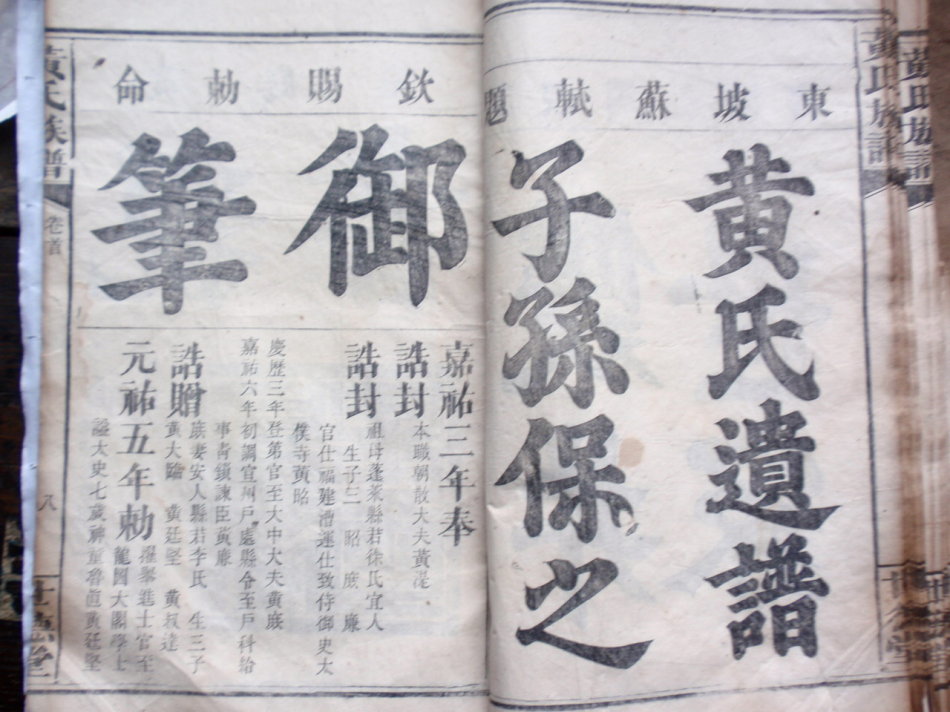 黃氏族譜
東坡蘇軾題
黃氏遺譜
子孫保之
欽賜勅命
御筆
嘉祐三年奉
誥封
本職朝散大夫黃湜
誥封
祖母蓬萊縣君徐氏宜人
生子三 昭 庶 廉
官仕福建漕運仕致侍御史太
僕寺黃昭
慶歷三年登第官至大中大夫黃庶
嘉祐六年初調宣州戶處縣令至戶科給
事青鎖諫臣黃廉
誥贈
庶妻安人縣君李氏 生三子
黃大臨 黃廷堅 黃叔達
元祐五年勅
擢舉進士官至
龍圖大閣學士
諡太史七歲神童魯直黃廷堅
黃氏族譜
卷首
八